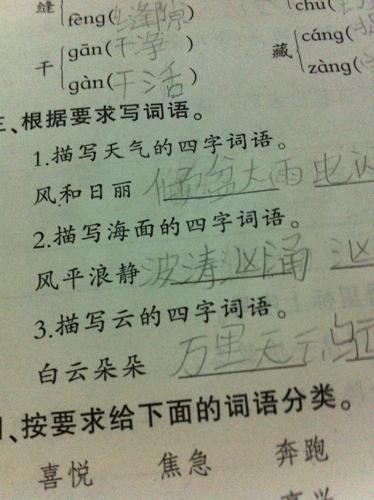 缝 fèng(缝隙) chǔ(
干 gān(干净) 藏 cáng(
gàn(干活) zàng(
三、根据要求写词语。
1.描写天气的四字词语。
风和日丽 倾盆大雨 电闪
2.描写海面的四字词语。
风平浪静 波涛汹涌 汹
3.描写云的四字词语。
白云朵朵 万里无云 乌云
、按要求给下面的词语分类。
喜悦 焦急 奔跑
高兴